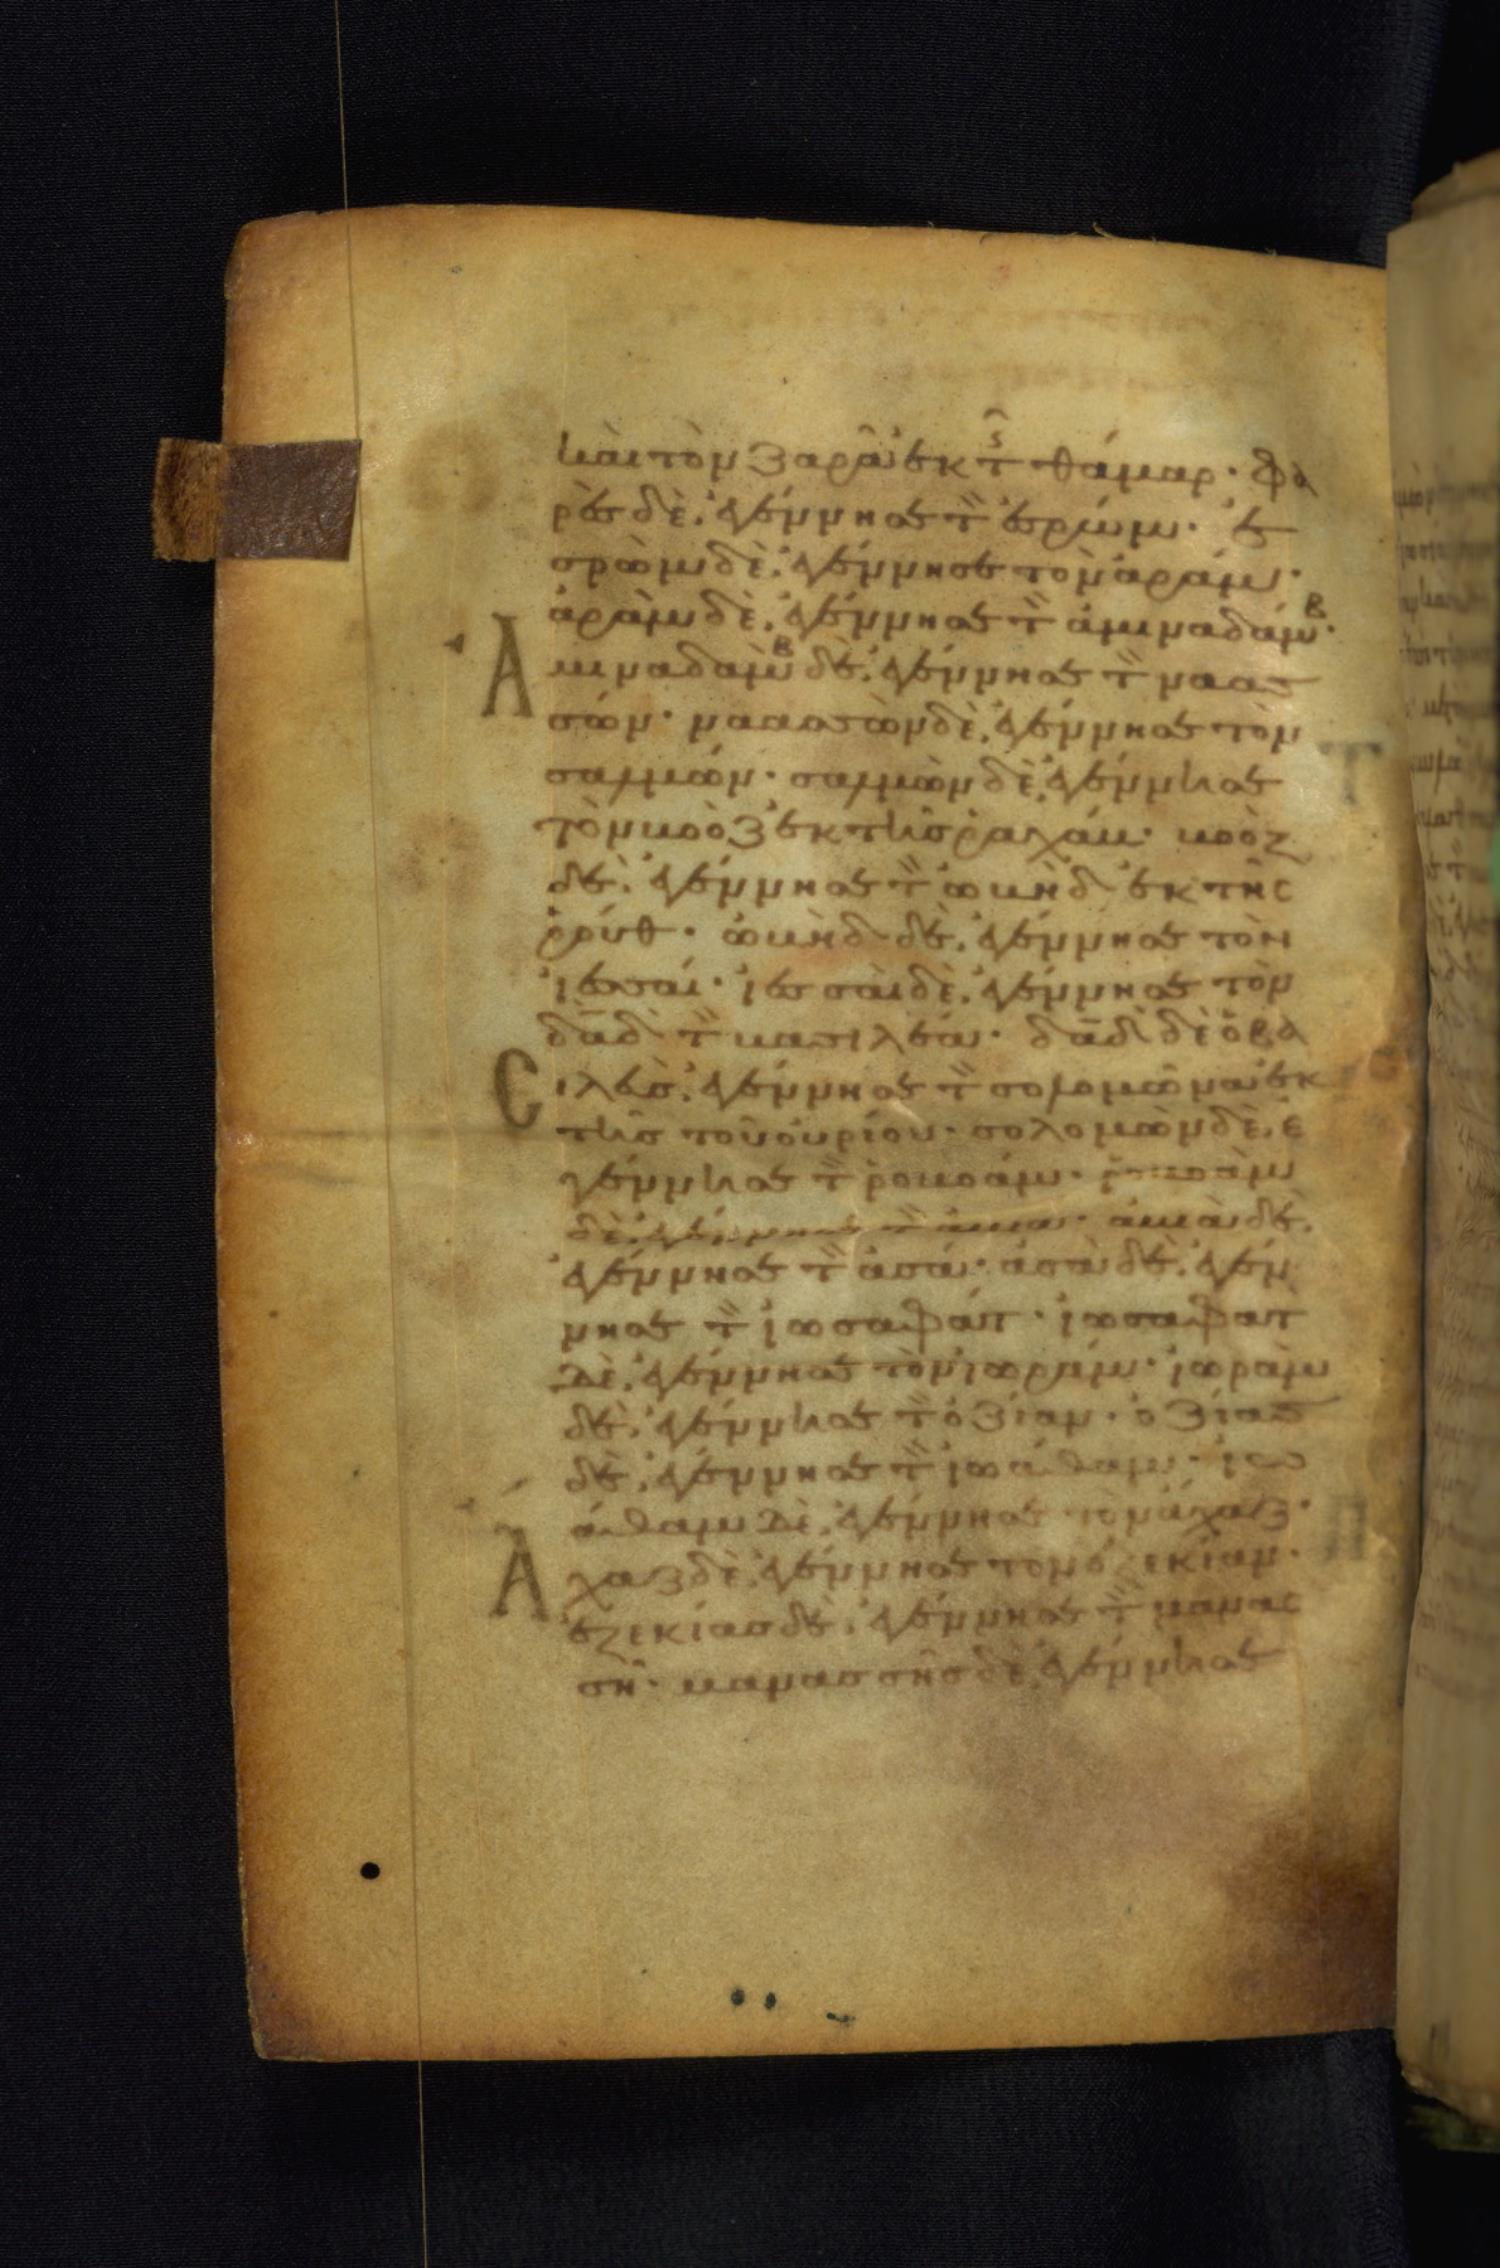 καὶ τὸν ζαρὰ ἐκ τῆς θάμαρ· φα
ρὲς δὲ ἐγέννησε τ̀ ἐσρώμ· ἐ
σρὼμ δὲ ἐγέννησε τὸν ἀράμ·
ἀρὰμ δὲ ἐγέννησε τ̀ ἀμιναδάμβ·
Α μιναδὰμβ δὲ ἐγέννησε τ̀ ναασ
σών· ναασσὼν δὲ ἐγέννησε τὸν
σαλμών· σαλμὼν δὲ ἐγέννησε
τὸν βοὸζ ἐκ τῆς ῥαχάβ· βοὸζ
δὲ ἐγέννησε τ̀ ὠβὴδ ἐκ τῆς
ῥούθ· ὠβὴδ δὲ ἐγέννησε τὸν
ἰεσσαί· ἰεσσαὶ δὲ ἐγέννησε τὸν
δᾱδ τ̀ βασιλέα· δᾱδ δὲ ὁ βα
Ϲ ιλεὺς ἐγέννησε τ̀ σολομῶνα ἐκ
τῆς τοῦ οὐρίου· σολομὼν δὲ ἐ
γέννησε τ̀ ῥοβοάμ· ῥοβοὰμ
δὲ ἐγέννησε τ̀ ἀβιά· ἀβιὰ δὲ
ἐγέννησε τ̀ ἀσά· ἀσὰ δὲ ἐγέν
νησε τ̀ ἰωσαφάτ· ἰωσαφὰτ
δὲ ἐγέννησε τὸν ἰωράμ· ἰωρὰμ
δὲ ἐγέννησε τ̀ ὀζίαν· ὀζίας
δὲ ἐγέννησε τ̀ ἰωάθαμ· ἰω
άθαμ δὲ ἐγέννησε τὸν ἄχαζ·
Α χαζ δὲ ἐγέννησε τὸν ἐζεκίαν·
ἐζεκίας δὲ ἐγέννησε τ̀ μανασ
σῆ· μανασσῆς δὲ ἐγέννησε